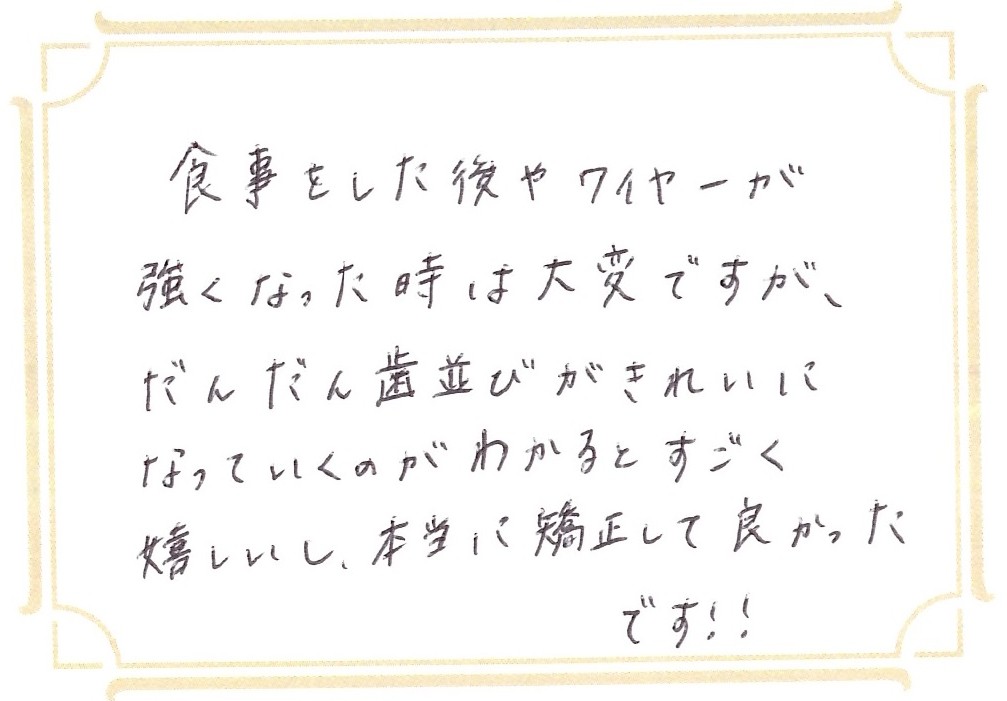 食事をした後やワイヤーが
強くなった時は大変ですが、
だんだん歯並びがきれいに
なっていくのがわかるとすごく
嬉しいし、本当に矯正して良かった
です!!